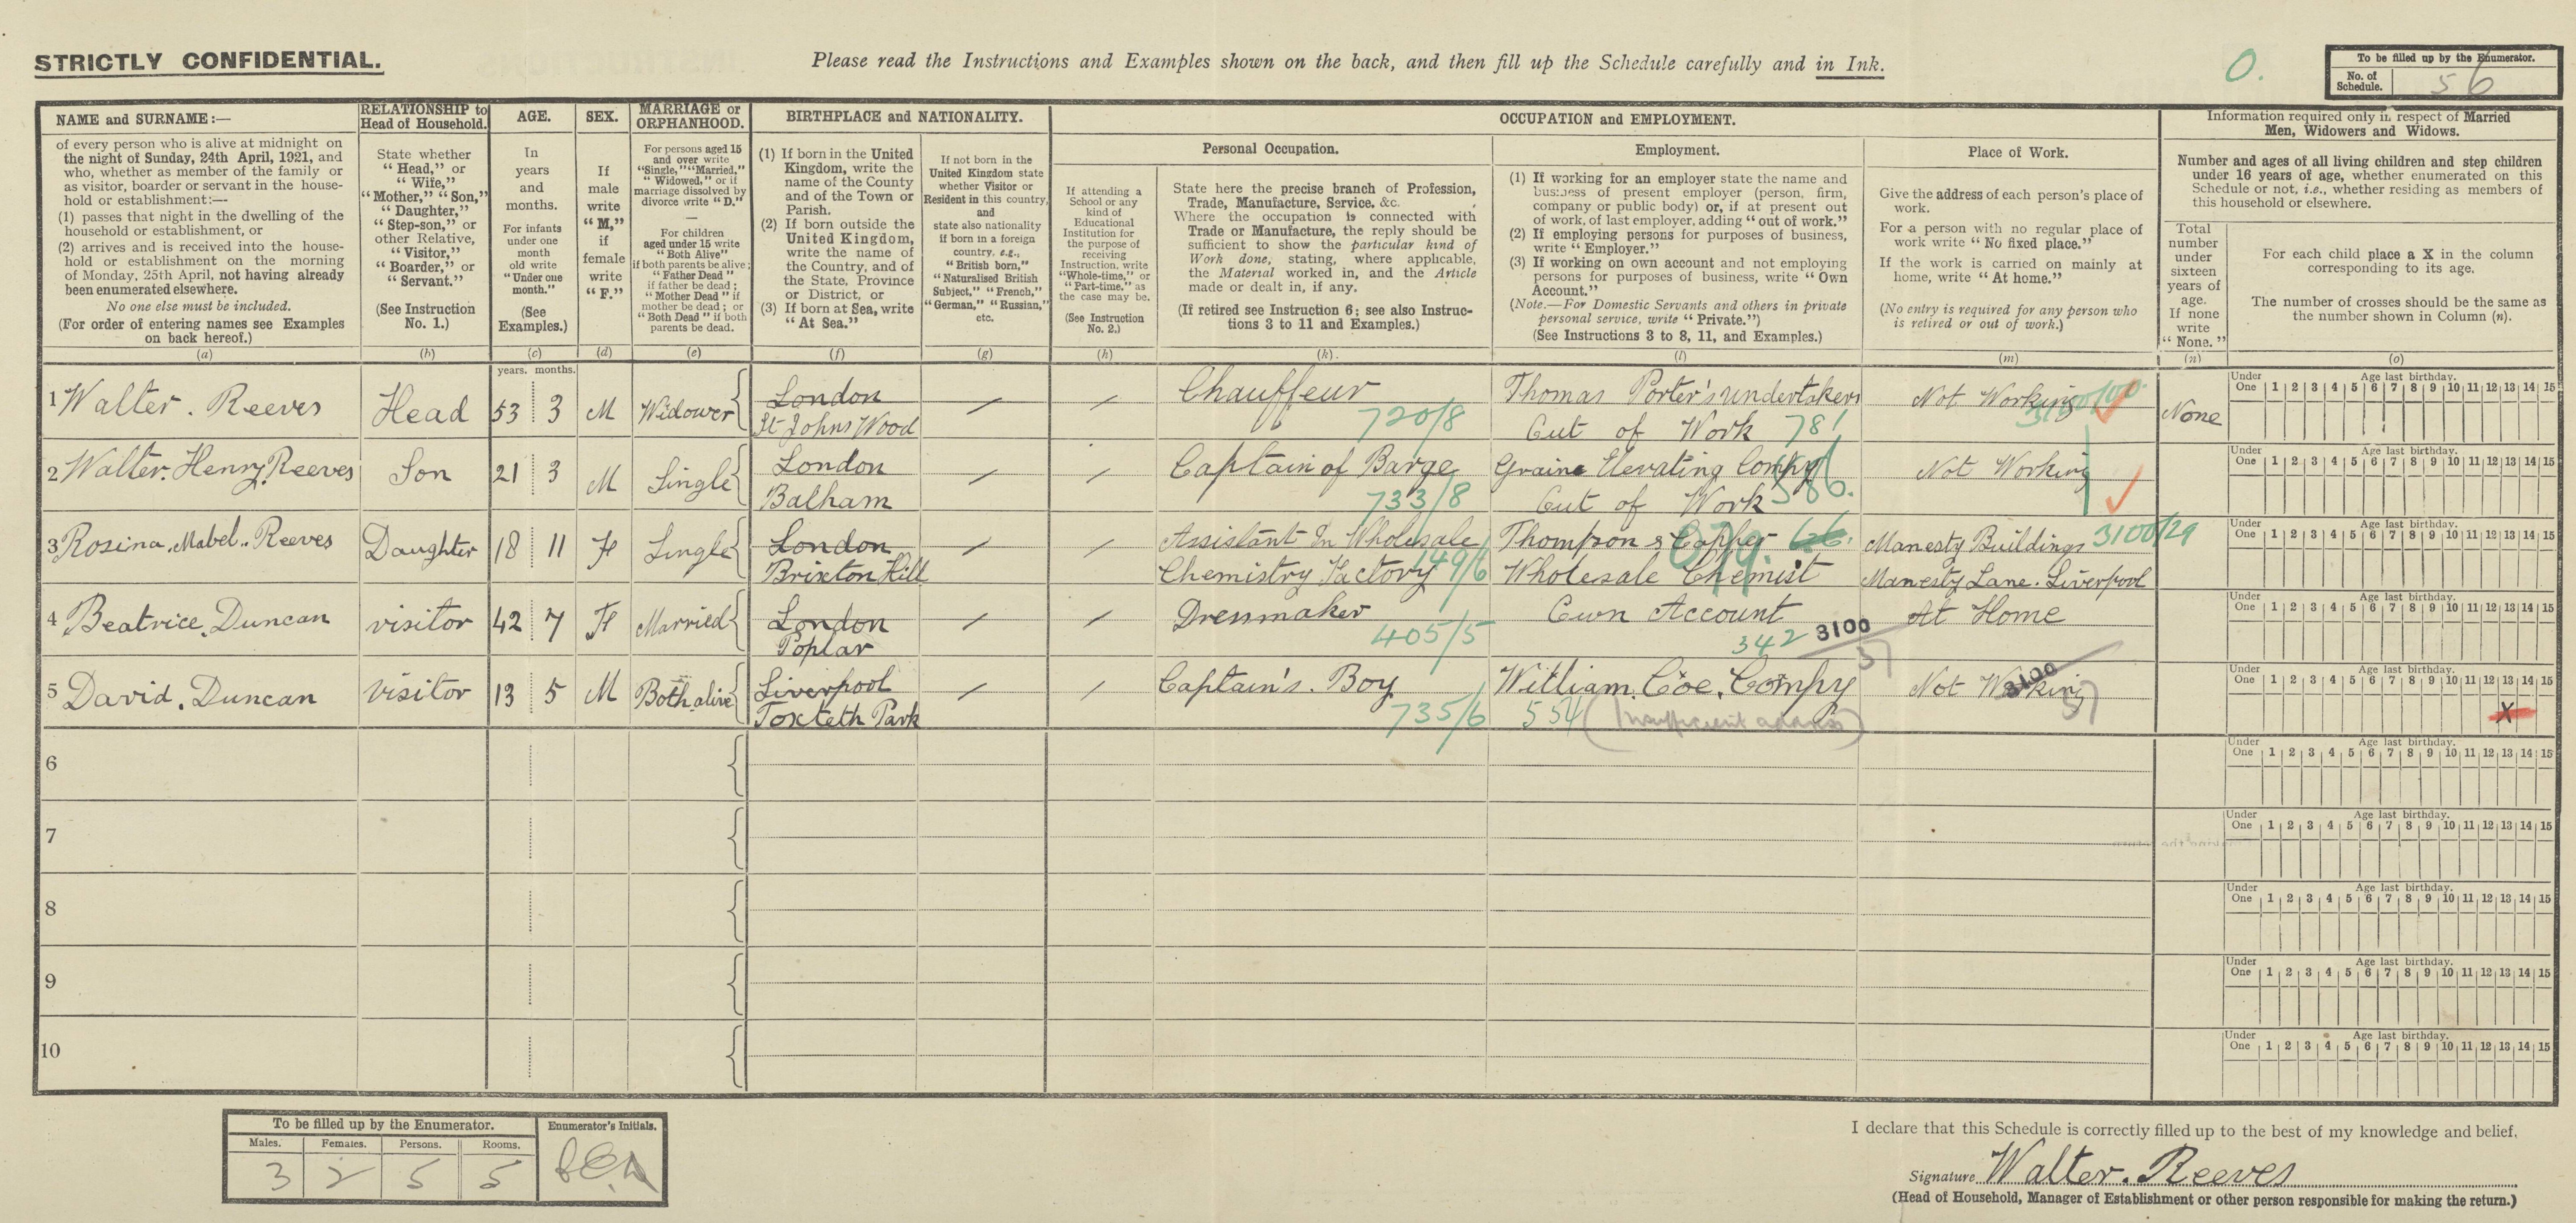 STRICTLY CONFIDENTIAL.
Please read the Instructions and Examples shown on the back, and then fill up the Schedule carefully and in Ink.
O.
To be filled up by the Enumerator.
No. of Schedule. 56
NAME and SURNAME:—
of every person who is alive at midnight on
the night of Sunday, 24th April, 1921, and
who, whether as member of the family or
as visitor, boarder or servant in the house-
hold or establishment:—
(1) passes that night in the dwelling of the
household or establishment, or
(2) arrives and is received into the house-
hold or establishment on the morning
of Monday, 25th April, not having already
been enumerated elsewhere.
No one else must be included.
(For order of entering names see Examples
on back hereof.)
(a)
RELATIONSHIP to
Head of Household.
State whether
"Head," or
"Wife,"
"Mother," "Son,"
"Daughter,"
"Step-son," or
other Relative,
"Visitor,"
"Boarder," or
"Servant."
(See Instruction
No. 1.)
(b)
AGE.
In
years
and
months.
For infants
under one
month
old write
"Under one
month."
(See
Examples.)
(c)
SEX.
If
male
write
"M,"
if
female
write
"F."
(d)
MARRIAGE or
ORPHANHOOD.
For persons aged 15
and over write
"Single," "Married,"
"Widowed," or if
marriage dissolved by
divorce write "D."
—
For children
aged under 15 write
"Both Alive"
if both parents be alive;
"Father Dead"
if father be dead;
"Mother Dead" if
mother be dead; or
"Both Dead" if both
parents be dead.
(e)
BIRTHPLACE and NATIONALITY.
(1) If born in the United
Kingdom, write the
name of the County
and of the Town or
Parish.
(2) If born outside the
United Kingdom,
write the name of
the Country, and of
the State, Province
or District, or
(3) If born at Sea, write
"At Sea."
(f)
If not born in the
United Kingdom state
whether Visitor or
Resident in this country,
and
state also nationality
if born in a foreign
country, e.g.,
"British born,"
"Naturalised British
Subject," "French,"
"German," "Russian,"
etc.
(g)
OCCUPATION and EMPLOYMENT.
If attending a
School or any
kind of
Educational
Institution for
the purpose of
receiving
Instruction, write
"Whole-time," or
"Part-time," as
the case may be.
(See Instruction
No. 2.)
(h)
Personal Occupation.
State here the precise branch of Profession,
Trade, Manufacture, Service, &c.
Where the occupation is connected with
Trade or Manufacture, the reply should be
sufficient to show the particular kind of
Work done, stating, where applicable,
the Material worked in, and the Article
made or dealt in, if any.
(If retired see Instruction 6; see also Instruc-
tions 3 to 11 and Examples.)
(k).
Employment.
(1) If working for an employer state the name and
business of present employer (person, firm,
company or public body) or, if at present out
of work, of last employer, adding "out of work."
(2) If employing persons for purposes of business,
write "Employer."
(3) If working on own account and not employing
persons for purposes of business, write "Own
Account."
(Note.—For Domestic Servants and others in private
personal service, write "Private.")
(See Instructions 3 to 8, 11, and Examples.)
(l)
Place of Work.
Give the address of each person's place of
work.
For a person with no regular place of
work write "No fixed place."
If the work is carried on mainly at
home, write "At home."
(No entry is required for any person who
is retired or out of work.)
(m)
Information required only in respect of Married
Men, Widowers and Widows.
Number and ages of all living children and step children
under 16 years of age, whether enumerated on this
Schedule or not, i.e., whether residing as members of
this household or elsewhere.
Total
number
under
sixteen
years of
age.
If none
write
"None."
(n)
For each child place a X in the column
corresponding to its age.
The number of crosses should be the same as
the number shown in Column (n).
(o)
years. months.
1 Walter. Reeves Head 53 3 M Widower London St Johns Wood Chauffeur 720/8 Thomas Porter's undertakers Out of Work 781 Not Working None
Under One Age last birthday. 1 2 3 4 5 6 7 8 9 10 11 12 13 14 15
2 Walter. Henry. Reeves Son 21 3 M Single London Balham Captain of Barge 733/8 Graine Elevating Compy Out of Work Not Working
Under One Age last birthday. 1 2 3 4 5 6 7 8 9 10 11 12 13 14 15
3 Rosina. Mabel. Reeves Daughter 18 11 F Single London Brixton Hill Assistant In Wholesale Chemistry Factory 149/6 Thompson & Capper Wholesale Chemist 079. Manesty Buildings Manesty Lane. Liverpool 3100/29
Under One Age last birthday. 1 2 3 4 5 6 7 8 9 10 11 12 13 14 15
4 Beatrice. Duncan visitor 42 7 F Married London Poplar Dressmaker 405/5 Own Account 342 3100 At Home
Under One Age last birthday. 1 2 3 4 5 6 7 8 9 10 11 12 13 14 15
5 David. Duncan visitor 13 5 M Both alive Liverpool Toxteth Park Captain's. Boy 735/6 William. Coe. Compy 554 (Insufficient address) Not Working 3100
Under One Age last birthday. 1 2 3 4 5 6 7 8 9 10 11 12 13 14 15
X
6
Under One Age last birthday. 1 2 3 4 5 6 7 8 9 10 11 12 13 14 15
7
Under One Age last birthday. 1 2 3 4 5 6 7 8 9 10 11 12 13 14 15
8
Under One Age last birthday. 1 2 3 4 5 6 7 8 9 10 11 12 13 14 15
9
Under One Age last birthday. 1 2 3 4 5 6 7 8 9 10 11 12 13 14 15
10
Under One Age last birthday. 1 2 3 4 5 6 7 8 9 10 11 12 13 14 15
To be filled up by the Enumerator.
Males. Females. Persons. Rooms.
3 2 5 5
Enumerator's Initials.
I declare that this Schedule is correctly filled up to the best of my knowledge and belief.
Signature Walter. Reeves
(Head of Household, Manager of Establishment or other person responsible for making the return.)